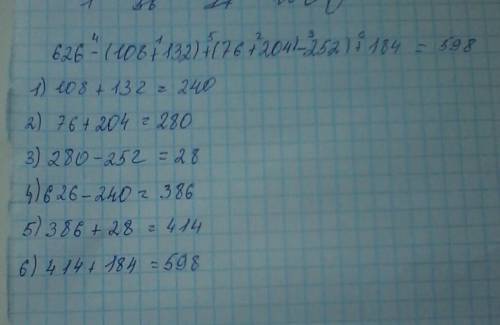 626 - (108 + 132) + (76 + 204) - 252) + 184 = 598
1) 108 + 132 = 240
2) 76 + 204 = 280
3) 280 - 252 = 28
4) 626 - 240 = 386
5) 386 + 28 = 414
6) 414 + 184 = 598